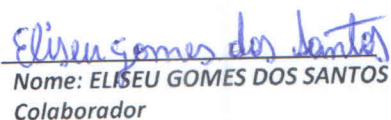 Eliseu gomes dos Santos
Nome: ELISEU GOMES DOS SANTOS
Colaborador